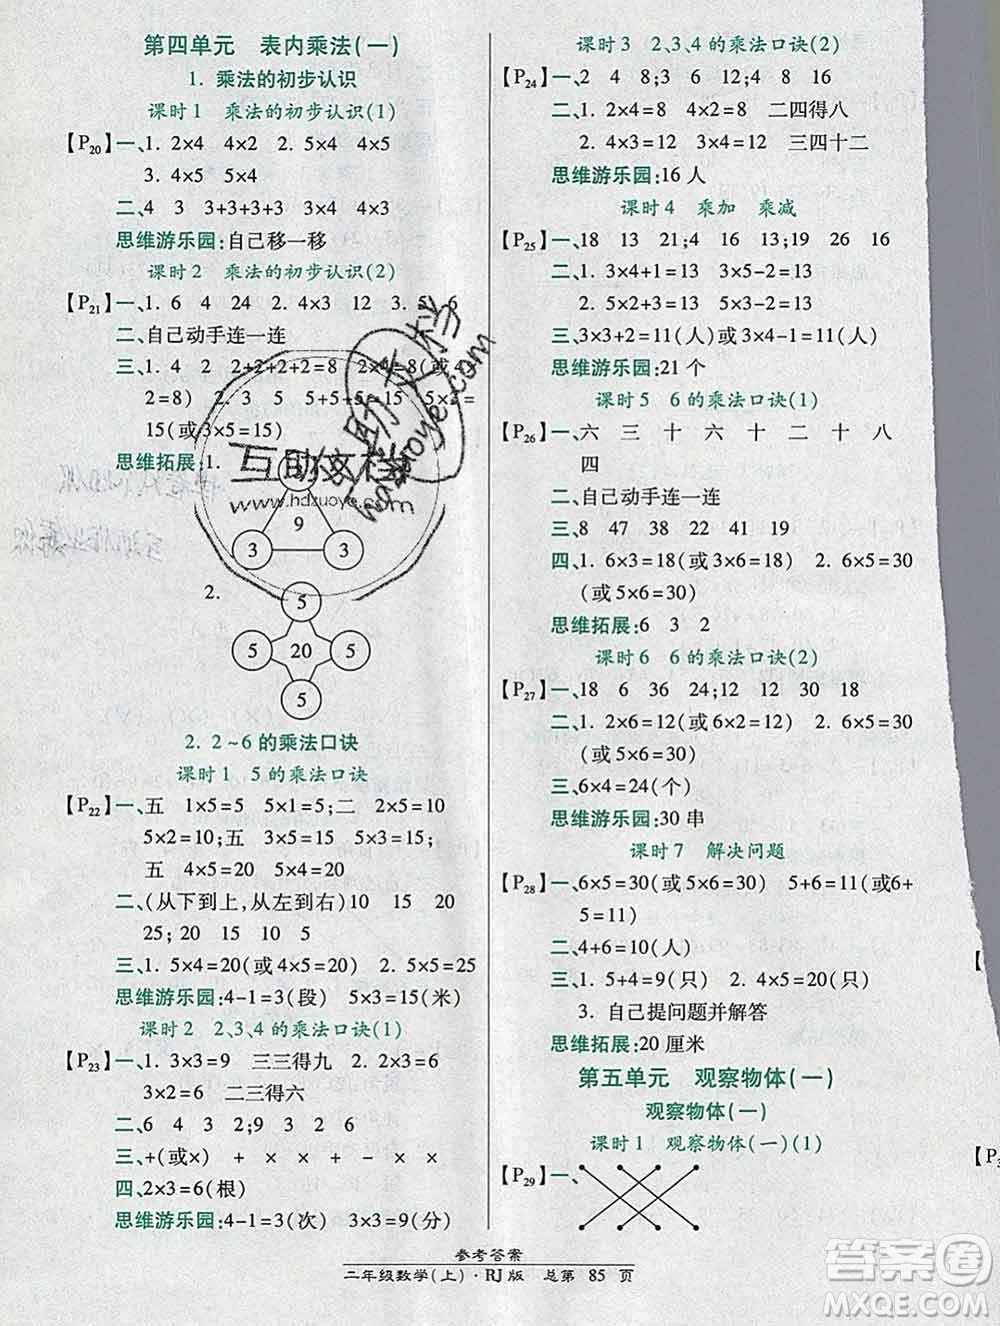 第四单元 表内乘法(一)
1. 乘法的初步认识
课时1 乘法的初步认识(1)
【P20】一、1. 2×4 4×2 2. 5×4 4×5
3. 4×5 5×4
二、4 3 3+3+3+3 3×4 4×3
思维游乐园:自己移一移
课时2 乘法的初步认识(2)
【P21】一、1. 6 4 24 2. 4×3 12 3. 5 6
二、自己动手连一连
三、1. 4 2 2+2+2+2=8 2×4=8(或4×
2=8) 2. 3 5 5+5+5=15 5×3=
15(或3×5=15)
思维拓展:1.
3
9
3 3
2.
5
5 20 5
5
2. 2~6的乘法口诀
课时1 5的乘法口诀
【P22】一、五 1×5=5 5×1=5;二 2×5=10
5×2=10;五 3×5=15 5×3=15;
五 4×5=20 5×4=20
二、(从下到上,从左到右)10 15 20
25; 20 15 10
三、1. 5×4=20(或4×5=20) 2. 5×5=25
思维游乐园:4-1=3(段) 5×3=15(米)
课时2 2、3、4的乘法口诀(1)
【P23】一、1. 3×3=9 三三得九 2. 2×3=6
3×2=6 二三得六
二、6 4 3 2 9 3 2 6
三、+(或×) × × + × + ×
四、2×3=6(根)
思维游乐园:4-1=3(次) 3×3=9(分)
课时3 2、3、4的乘法口诀(2)
【P24】一、2 4 8;3 6 12;4 8 16
二、1. 2×4=8 4×2=8 二四得八
2. 4×3=12 3×4=12 三四十二
思维游乐园:16人
课时4 乘加 乘减
【P25】一、18 13 21;4 16 13 10 16
二、1. 3×4+1=13 3×5-2=13
2. 5×2+3=13 5×3-2=13
三、3×3+2=11(人)或3×4-1=11(人)
思维游乐园:21个
课时5 6的乘法口诀(1)
【P26】一、六 三 十 六 十 二 十 八
四
二、自己动手连一连
三、8 47 38 22 41 19
四、1. 6×3=18(或3×6=18) 2. 6×5=30
(或5×6=30)
思维拓展:6 3 2
课时6 6的乘法口诀(2)
【P27】一、18 6 36 24;12 12 30 18
二、1. 2×6=12(或6×2=12) 2. 6×5=30
(或5×6=30)
三、6×4=24(个)
思维游乐园:30串
课时7 解决问题
【P28】一、6×5=30(或5×6=30) 5+6=11(或6+
5=11)
二、4+6=10(人)
三、1. 5+4=9(只) 2. 4×5=20(只)
3. 自己提问题并解答
思维拓展:20厘米
第五单元 观察物体(一)
观察物体(一)
课时1 观察物体(一)(1)
【P29】一、
参考答案
二年级数学(上)·RJ版 总第 85 页
互助文档
www.hdzuoye.com
答案圈
MXQE.COM